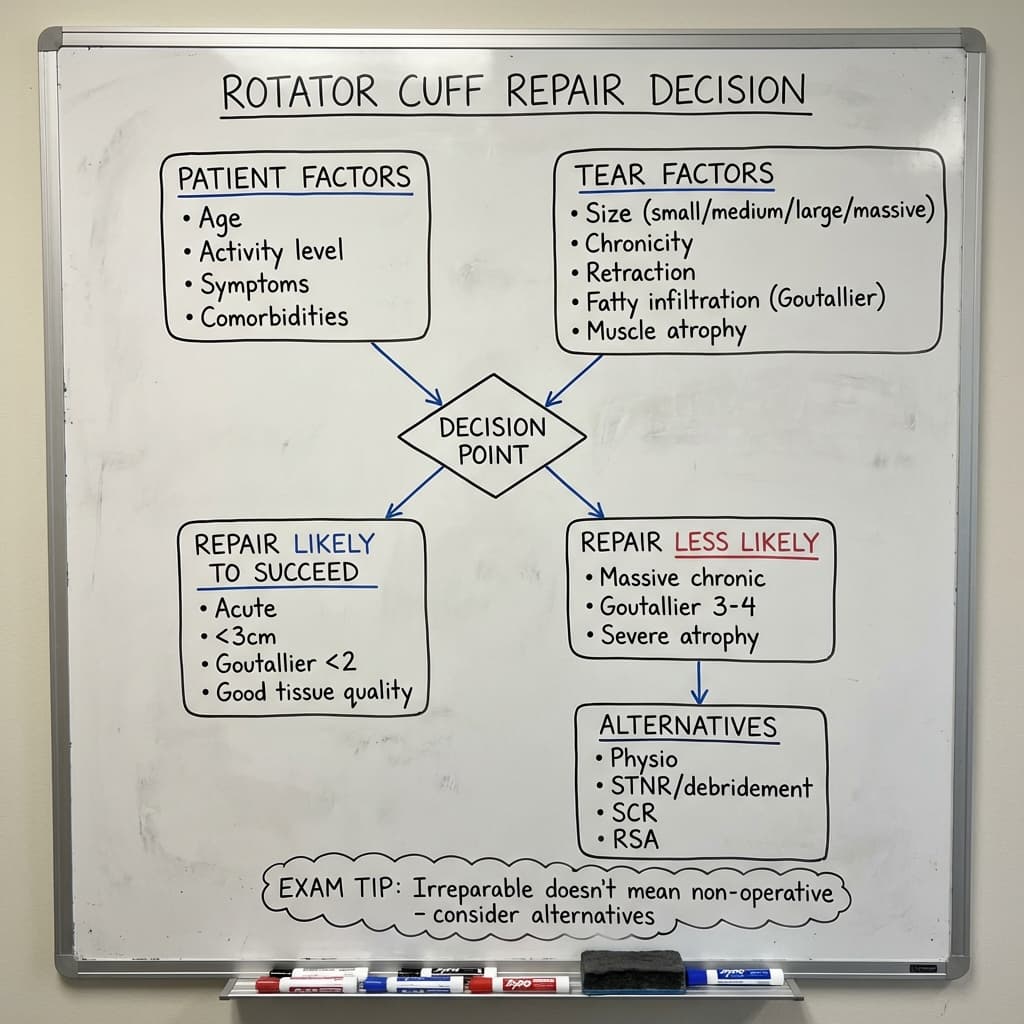 ROTATOR CUFF REPAIR DECISION
PATIENT FACTORS
• Age
• Activity level
• Symptoms
• Comorbidities
TEAR FACTORS
• Size (small/medium/large/massive)
• Chronicity
• Retraction
• Fatty infiltration (Goutallier)
• Muscle atrophy
DECISION
POINT
REPAIR LIKELY
TO SUCCEED
• Acute
• <3cm
• Goutallier <2
• Good tissue quality
REPAIR LESS LIKELY
• Massive chronic
• Goutallier 3-4
• Severe atrophy
ALTERNATIVES
• Physio
• STNR/debridement
• SCR
• RSA
EXAM TIP: Irreparable doesn't mean non-operative
– consider alternatives
EXPO